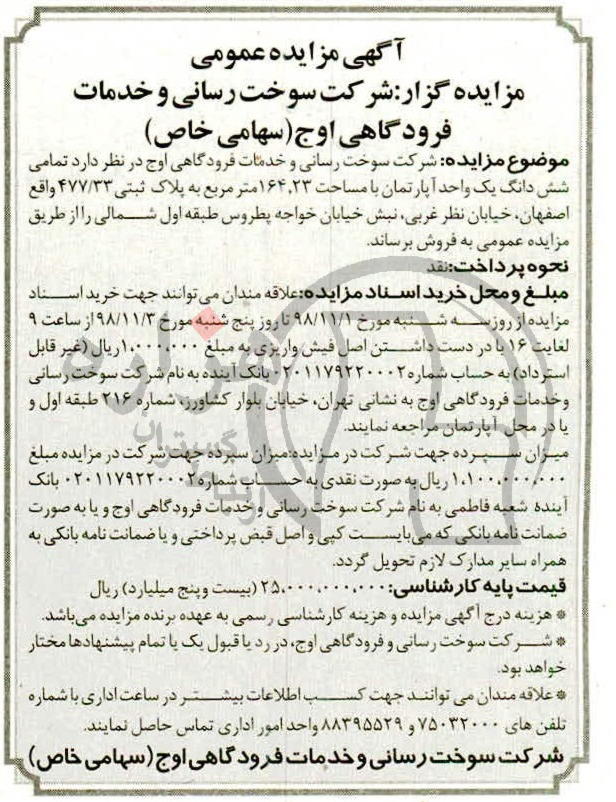 آگهی مزایده عمومی
مزایده گزار:شرکت سوخت رسانی و خدمات
فرودگاهی اوج(سهامی خاص)
موضوع مزایده: شرکت سوخت رسانی و خدمات فرودگاهی اوج در نظر دارد تمامی
شش دانگ یک واحد آپارتمان با مساحت ۱۶۴,۲۳متر مربع به پلاک ثبتی ۴۷۷/۳۳واقع
اصفهان، خیابان نظر غربی، نبش خیابان خواجه پطروس طبقه اول شمالی را از طریق
مزایده عمومی به فروش برساند.
نحوه پرداخت:نقد
مبلغ و محل خرید اسناد مزایده:علاقه مندان می توانند جهت خرید اسناد
مزایده از روز سه شنبه مورخ ۹۸/۱۱/۱ تا روز پنج شنبه مورخ ۹۸/۱۱/۳ از ساعت ۹
لغایت ۱۶ با در دست داشتن اصل فیش واریزی به مبلغ ۱,۰۰۰,۰۰۰ ریال(غیر قابل
استرداد) به حساب شماره ۰۲۰۱۱۷۹۲۲۰۰۰۲ بانک آینده به نام شرکت سوخت رسانی
و خدمات فرودگاهی اوج به نشانی تهران، خیابان بلوار کشاورز، شماره ۲۱۶ طبقه اول و
یا در محل آپارتمان مراجعه نمایند.
میزان سپرده جهت شرکت در مزایده:میزان سپرده جهت شرکت در مزایده مبلغ
۱,۱۰۰,۰۰۰,۰۰۰ ریال به صورت نقدی به حساب شماره ۰۲۰۱۱۷۹۲۲۰۰۰۲ بانک
آینده شعبه فاطمی به نام شرکت سوخت رسانی و خدمات فرودگاهی اوج و یا به صورت
ضمانت نامه بانکی که می بایست کپی و اصل قبض پرداختی و یا ضمانت نامه بانکی به
همراه سایر مدارک لازم تحویل گردد.
قیمت پایه کارشناسی:۲۵,۰۰۰,۰۰۰,۰۰۰ (بیست و پنج میلیارد) ریال
* هزینه درج آگهی مزایده و هزینه کارشناسی رسمی به عهده برنده مزایده می‌باشد.
* شرکت سوخت رسانی و فرودگاهی اوج، در رد یا قبول یک یا تمام پیشنهادها مختار
خواهد بود.
* علاقه مندان می توانند جهت کسب اطلاعات بیشتر در ساعت اداری با شماره
تلفن های ۷۵۰۳۲۰۰۰ و ۸۸۳۹۵۵۲۹ واحد امور اداری تماس حاصل نمایند.
شرکت سوخت رسانی و خدمات فرودگاهی اوج(سهامی خاص)